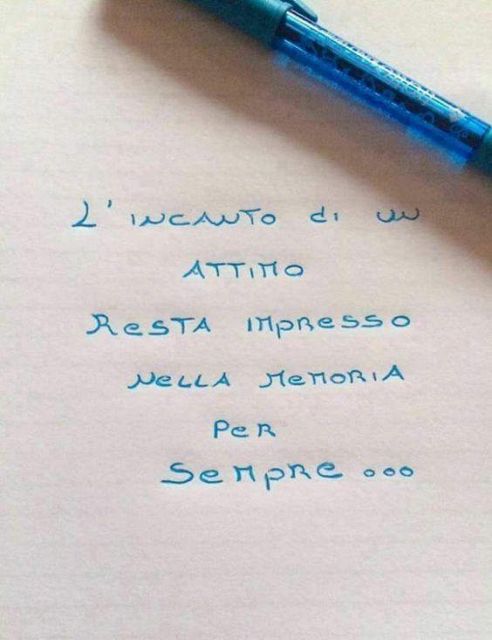 L'INCANTO di UN
ATTIMO
RESTA IMPRESSO
NELLA MEMORIA
PER
SEMPRE...